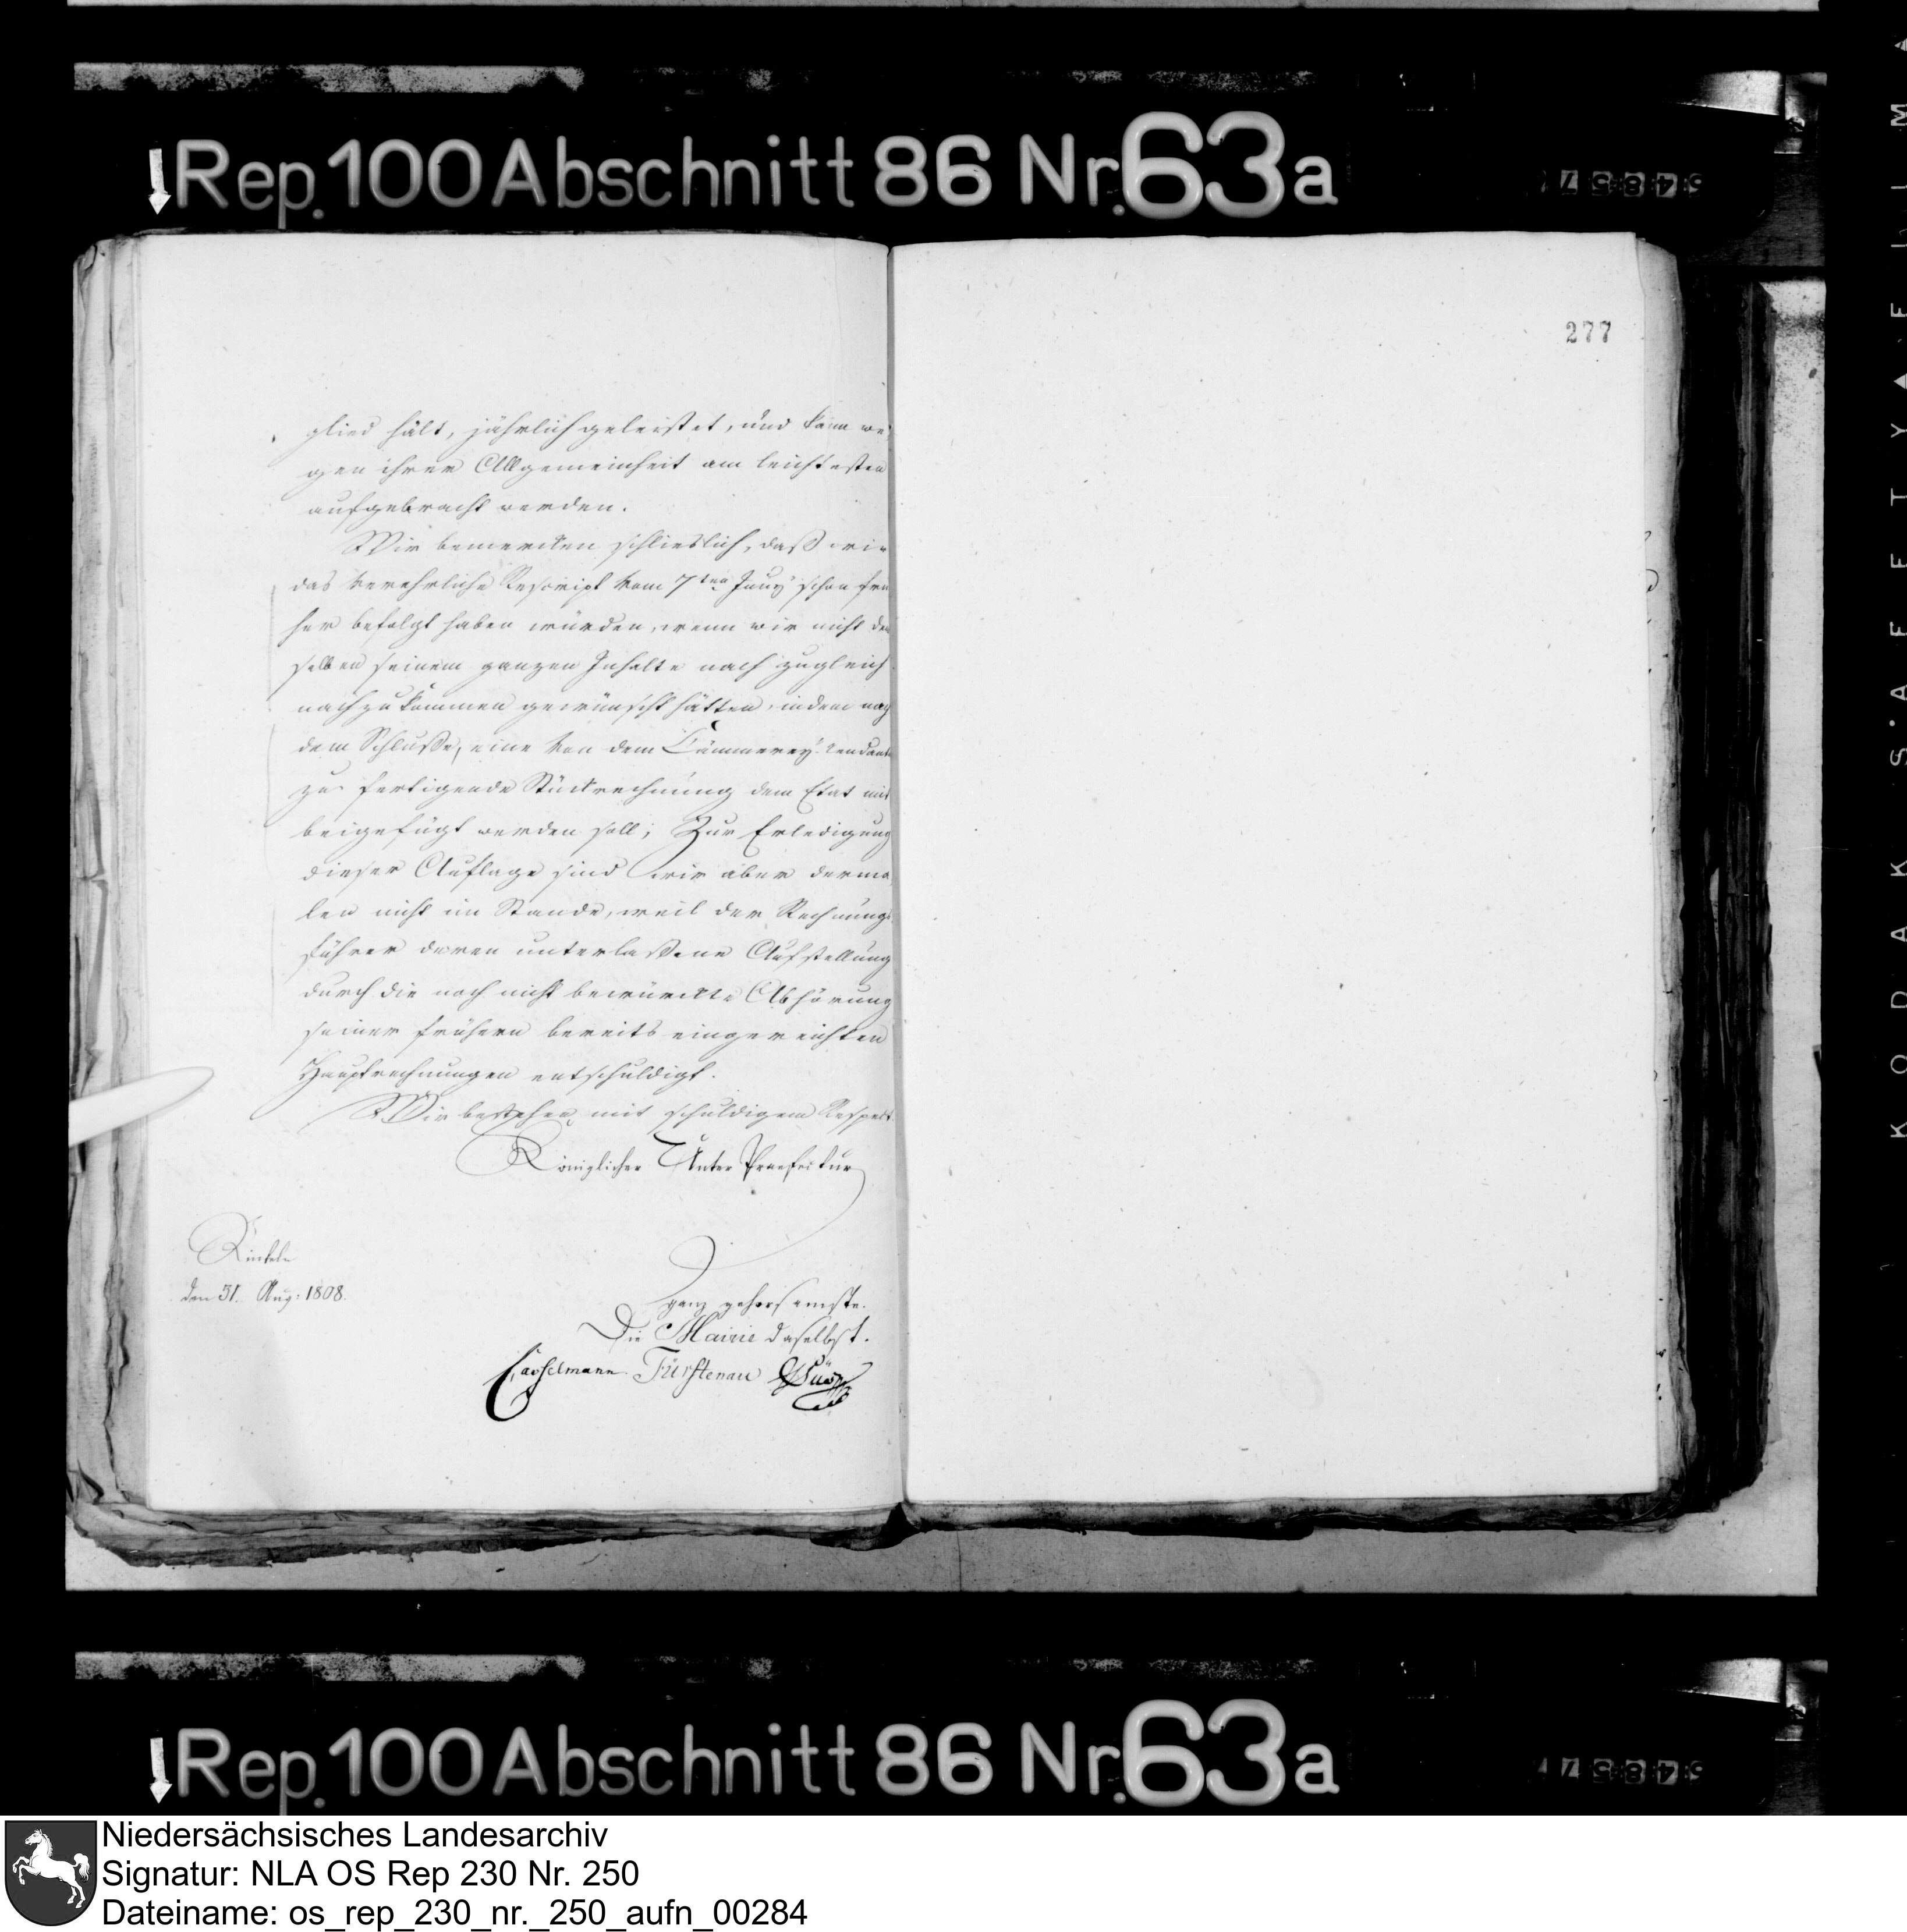 Rep. 100 Abschnitt 86 Nr. 63a
277
glied hält, jährlich geleistet, und kann we
gen ihrer Allgemeinheit am leichtesten
aufgebracht werden.
Wir bemerken schlieslich, daß wir
das verehrliche Rescript vom 7ten Juny schon frü
her befolgt haben würden, wenn wir nicht dem
selben seinem ganzen Inhalte nach zugleich
nachzukommen gewünscht hätten, indem nach
dem Schluße, eine von dem Cämmerey-Rendanten
zu fertigende Stückrechnung dem Etat mit
beigefügt werden soll; Zur Erledigung
dieser Auflage sind wir aber derma
len nicht im Stande, weil der Rechnungs
führer deren unterlaßene Aufstellung
durch die noch nicht bewürckte Abhörung
seiner frühern bereits eingereichten
Hauptrechnungen entschuldigt.
Wir bestehen mit schuldigem Respect
Königlicher Unter Praefectur
Rinteln
den 31. Aug: 1808.
ganz gehorsamste
Die Mairie daselbst.
Casselmann Fürstenau
Rep. 100 Abschnitt 86 Nr. 63a
KODAK SAFETY FILM
Niedersächsisches Landesarchiv
Signatur: NLA OS Rep 230 Nr. 250
Dateiname: os_rep_230_nr._250_aufn_00284